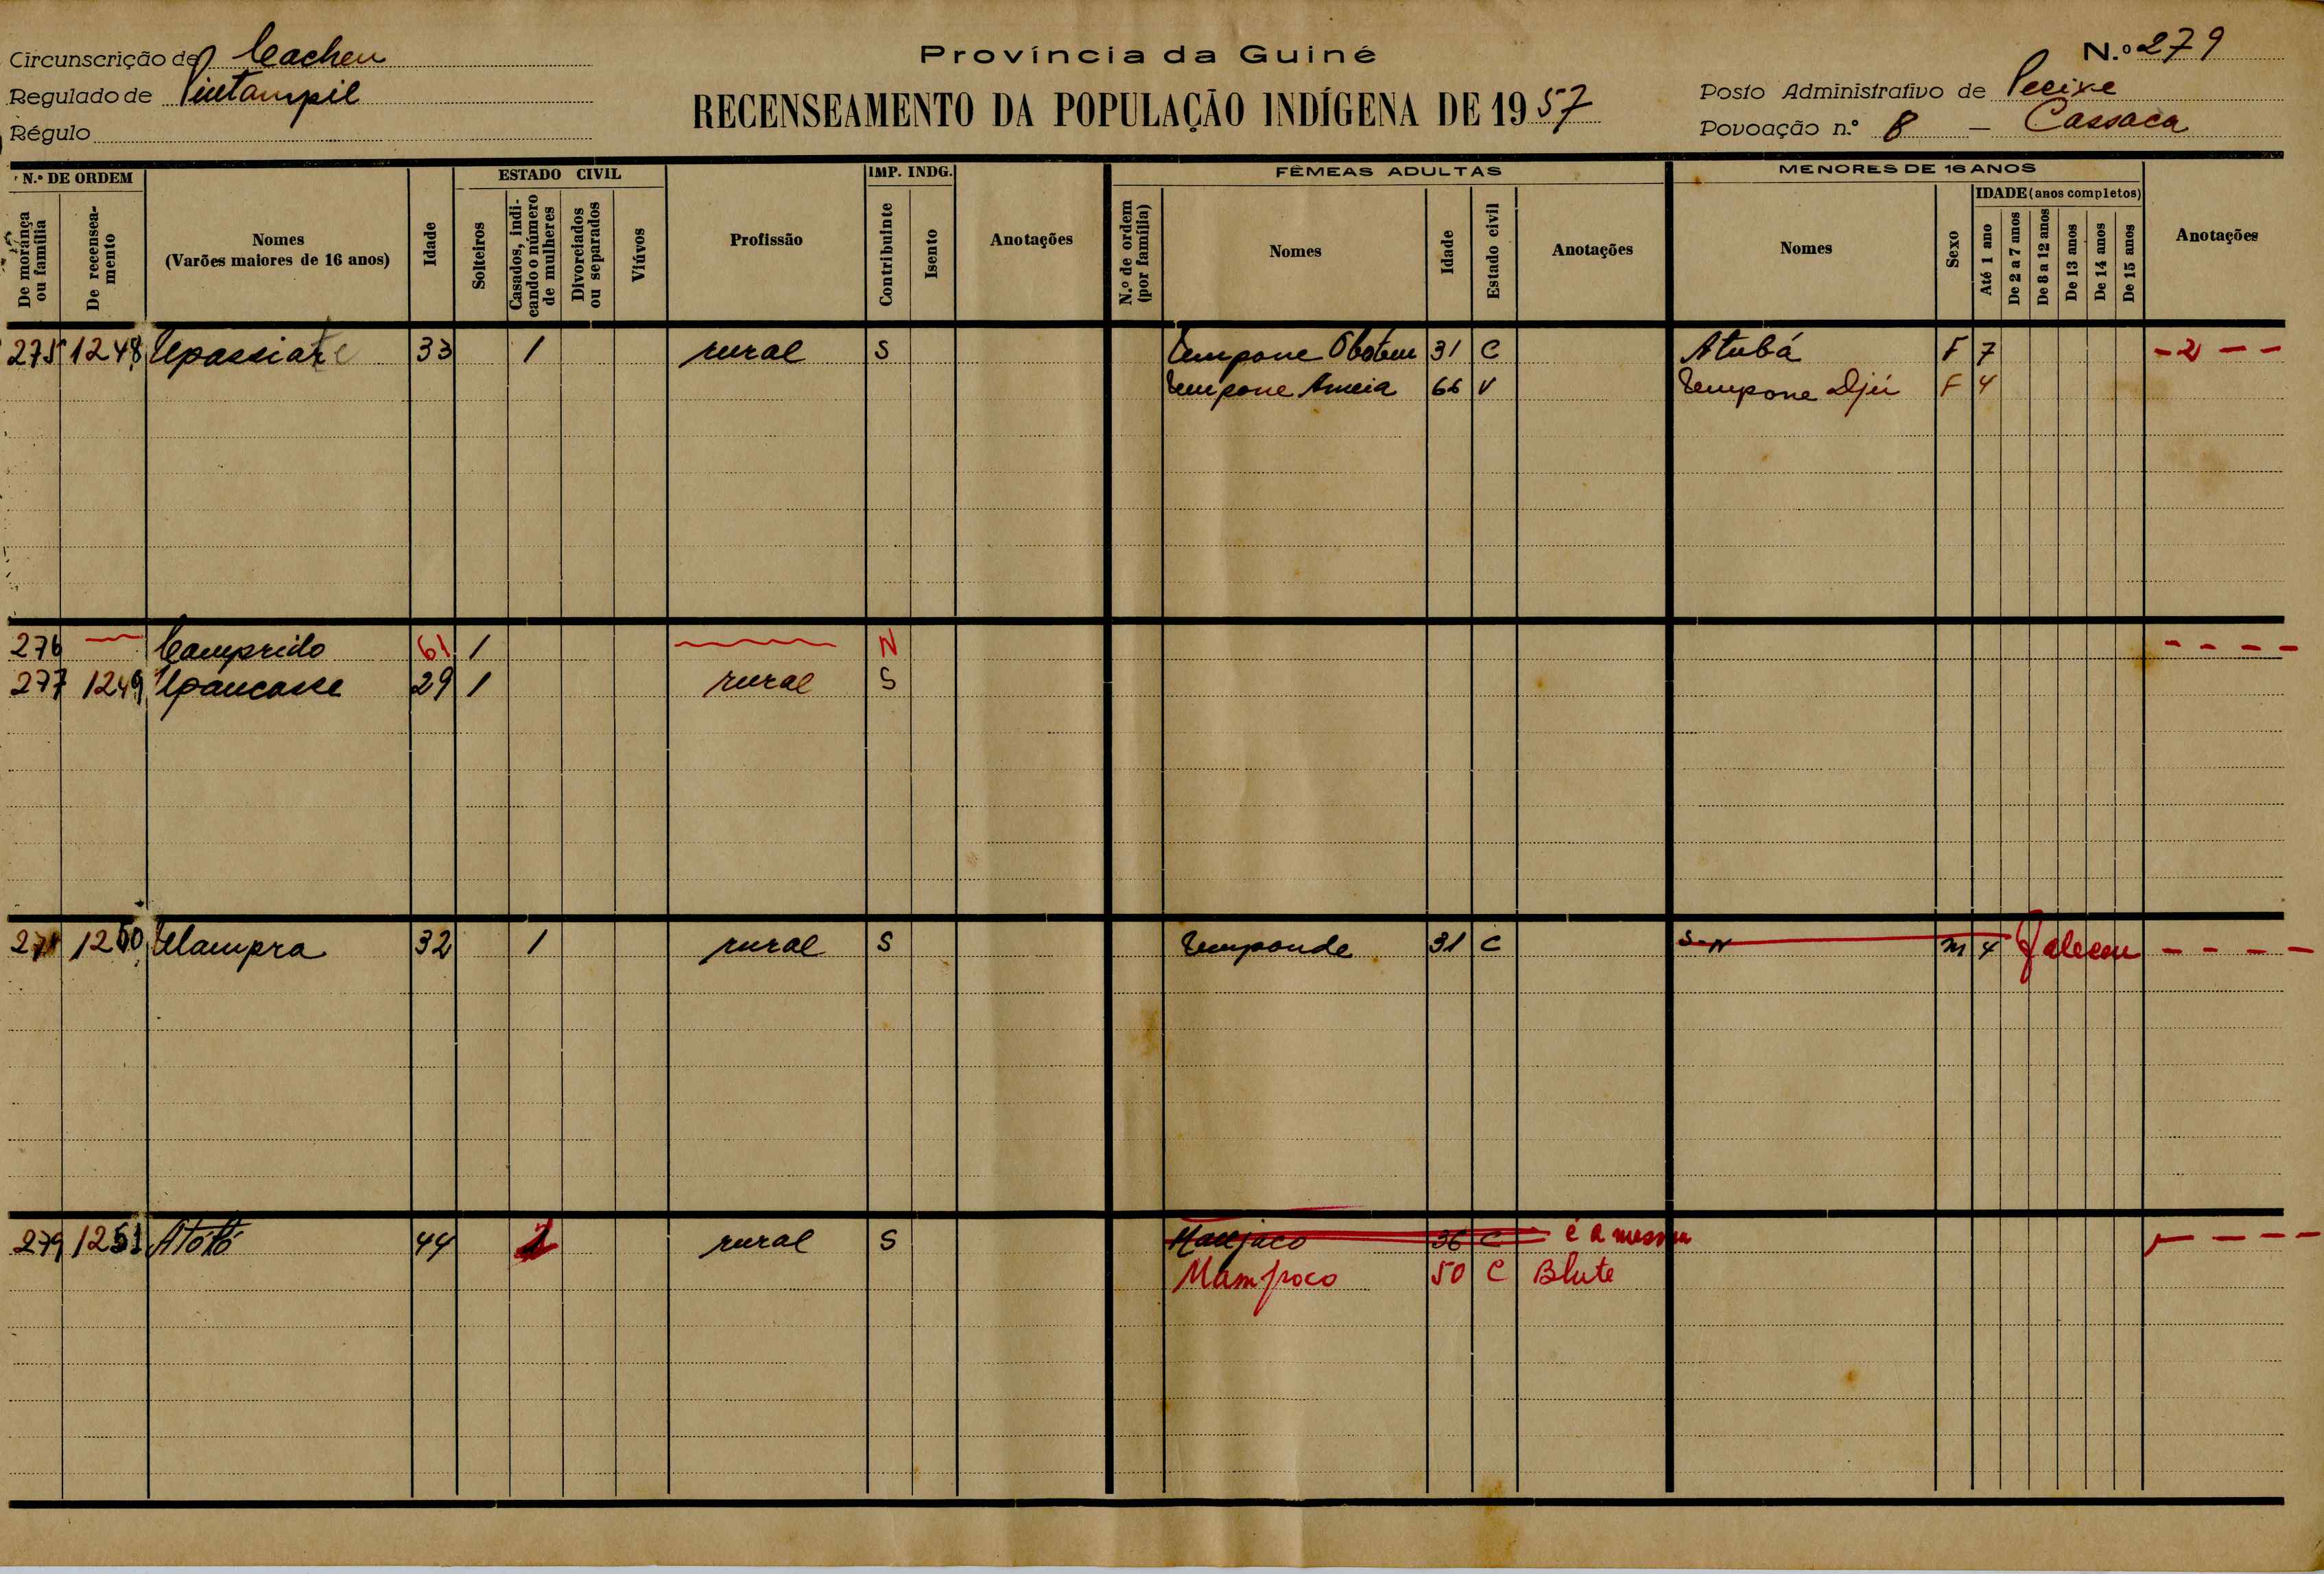 Província da Guiné
N.º 279
Circunscrição de Cacheu
Regulado de Pintampil
Régulo
RECENSEAMENTO DA POPULAÇÃO INDÍGENA DE 1957
Posto Administrativo de Pecixe
Povoação n.º 8 — Cassaca
N.º DE ORDEM
De morança ou família
De recenseamento
Nomes
(Varões maiores de 16 anos)
Idade
ESTADO CIVIL
Solteiros
Casados, indicando o número de mulheres
Divorciados ou separados
Viúvos
Profissão
IMP. INDG.
Contribuinte
Isento
Anotações
FÊMEAS ADULTAS
N.º de ordem (por família)
Nomes
Idade
Estado civil
Anotações
MENORES DE 16 ANOS
Nomes
Sexo
IDADE (anos completos)
Até 1 ano
De 2 a 7 anos
De 8 a 12 anos
De 13 anos
De 14 anos
De 15 anos
Anotações
275 1248 Upassiate 33 1 rural S Tempone Obotem 31 C Atubá F 7 - 2 - -
Tempone Ameia 66 V Tempone Djú F 4
276 — Camprido 61 1 N - - - -
277 1249 Upancasse 29 1 rural S
1250 Mampra 32 1 rural S Temponde 31 C S-N M 4 Faleceu - - - -
279 1251 Atótó 44 1 rural S 36 C é a mesma - - - -
Mampoco 50 C Blute